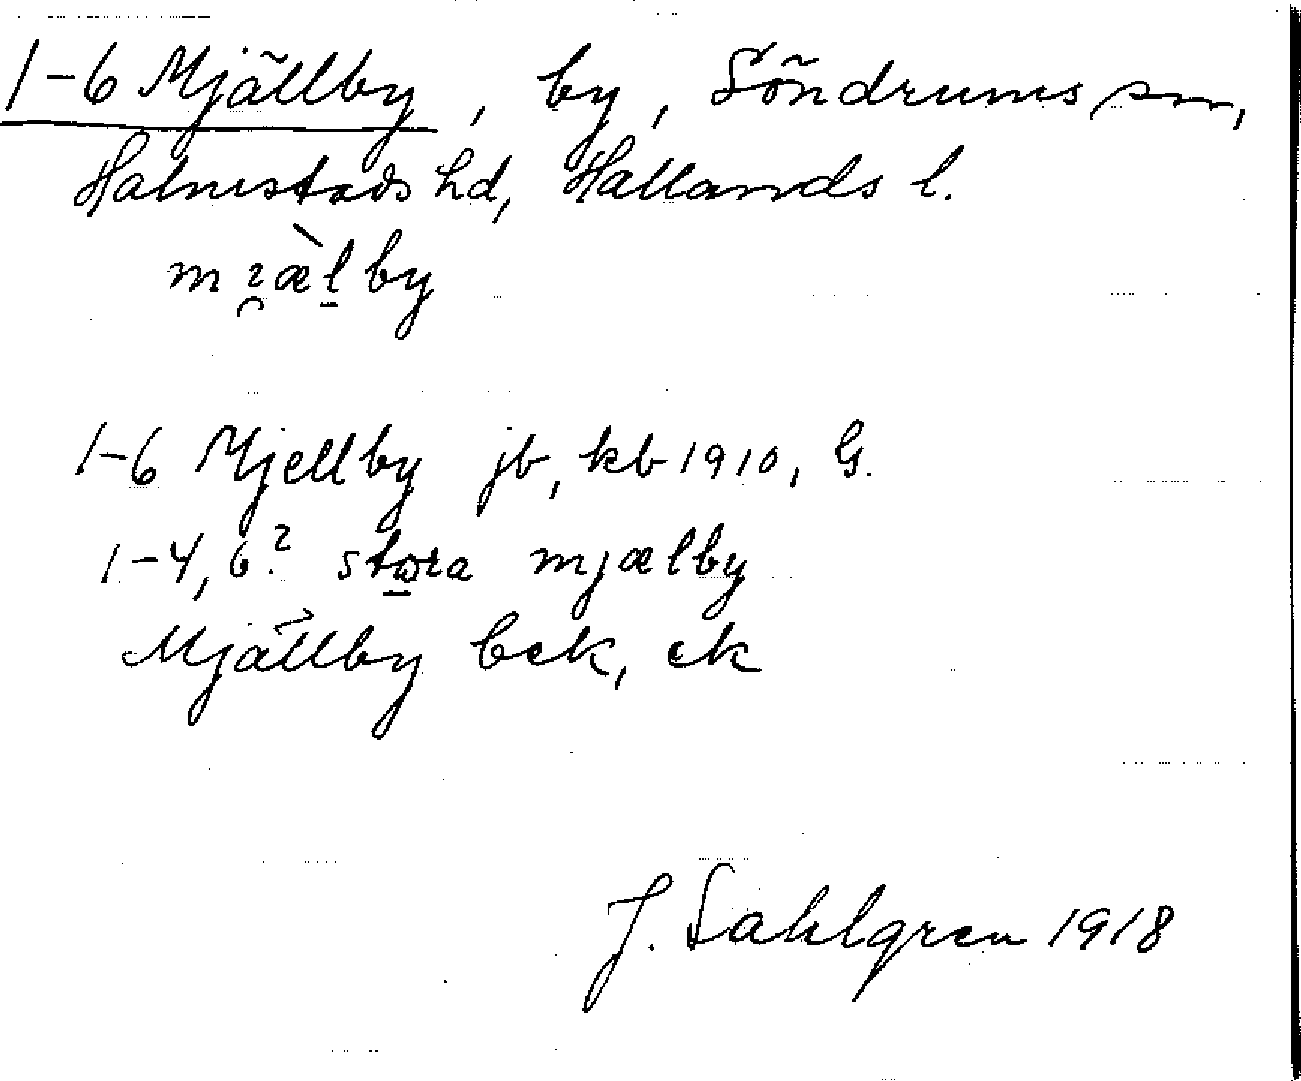 1-6 Mjällby, by, Söndrums sn,
Halmstads hd, Hallands l.
mı̯æ̀l̠by
1-6 Mjellby jb, kb 1910, G.
1-4, 6? stω̠ra mjælby
Mjällby bek, ek
J. Sahlgren 1918